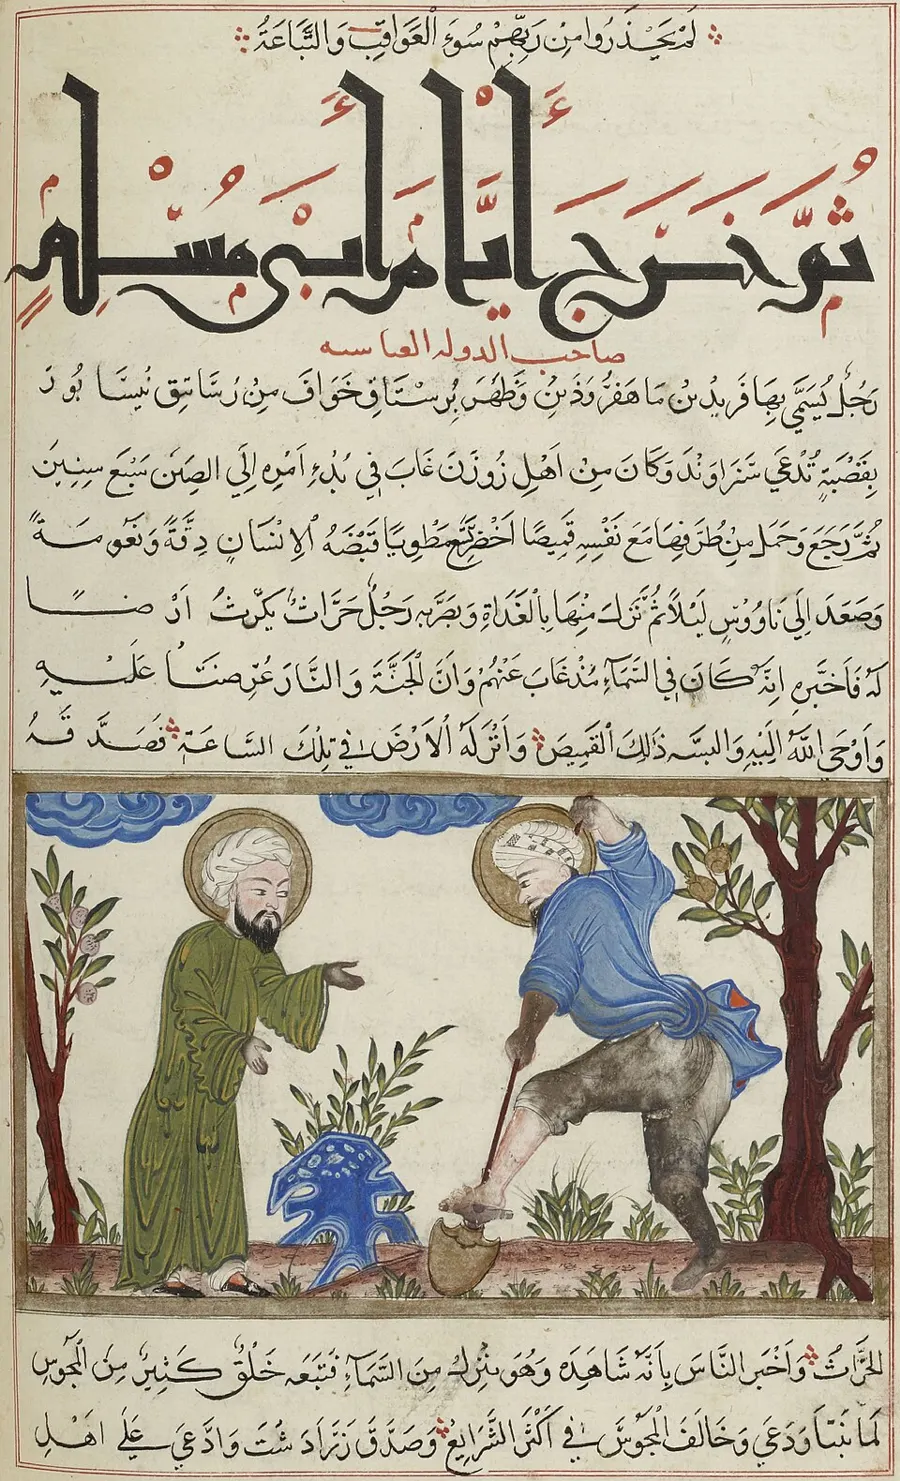 لَمْ يَحْذَرُوا مِنْ رَبِّهِمْ سُوءَ الْعَوَاقِبِ وَالتَّبَاعَةُ
ثُمَّ خَرَجَ أَيَّامَ أَبِي مُسْلِمٍ
صاحب الدوله العباسيه
رَجُلٌ يُسَمَّى بِهَافَرِيدُ بنُ مَاهَفَرُّوذَيِنِ وَظَهَرَ بِرُسْتَاقِ خَوَافَ مِنْ رَسَاتِيقِ نَيْسَابُورَ
بِقَصَبَةٍ تُدْعَي سَنَرَاوَنْدَ وَكَانَ مِنْ اَهْلِ زُوزَنَ غَابَ فِي بُدْءِ اَمْرِهِ اِلَي الصِّين سَبْعَ سِنِينَ
ثُمَّ رَجَعَ وَحَمَلَ مِنْ طُرَفِهَا مَعَ نَفْسِهِ قَمِيصًا اَخْضَرَ مَطْوِيًّا قَبْضَهُ الْاِنْسَانِ دِقَّةً وَنَعُومَةً
وَصَعَدَ اِلَي نَاوُوسٍ لَيْلاً ثُمَّ نَزَلَ مِنْهَا بِالْغَدَاةِ وَبَصَرَ بِهِ رَجُلٌ حَرَّاثٌ يَكْرُثُ اَرْضًا
لَهُ فَاَخْبَرَهِ اِنَّهُ كَانَ فِي السَّمَآءِ مُنْذُ غَابَ عَنْهُمْ وَاَنَّ الْجَنَّةَ وَالنَّارَ عُرِضَتَا عَلَيْهِ
وَاَوْحَي اللهُ اِلَيْهِ وَالبسَه ذَالِكَ الْقَمِيصَ وَاَنْزَلَهُ الْاَرْضَ فِي تِلْكَ السَّاعَةِ فَصَدَّقَهُ
الحَرَّاثُ وَاَخْبَرَ النَّاسَ بِاَنَّهُ شَاهَدَه وَهُوَ يَنْزِلُ مِنَ السَّمَآءِ فَتَبَعَه خَلْقٌ كَثِيرٌ مِنَ الْمَجُوسِ
لَمَّا تَنَبَّا وَدَعَي وَخَالَفَ الْمَجُوسَ فِي اَكْثَرِ الشَّرَايِعِ وَصَدَّقَ زَرَادَشْتَ وَادَّعَي عَلَي اَهْلِ